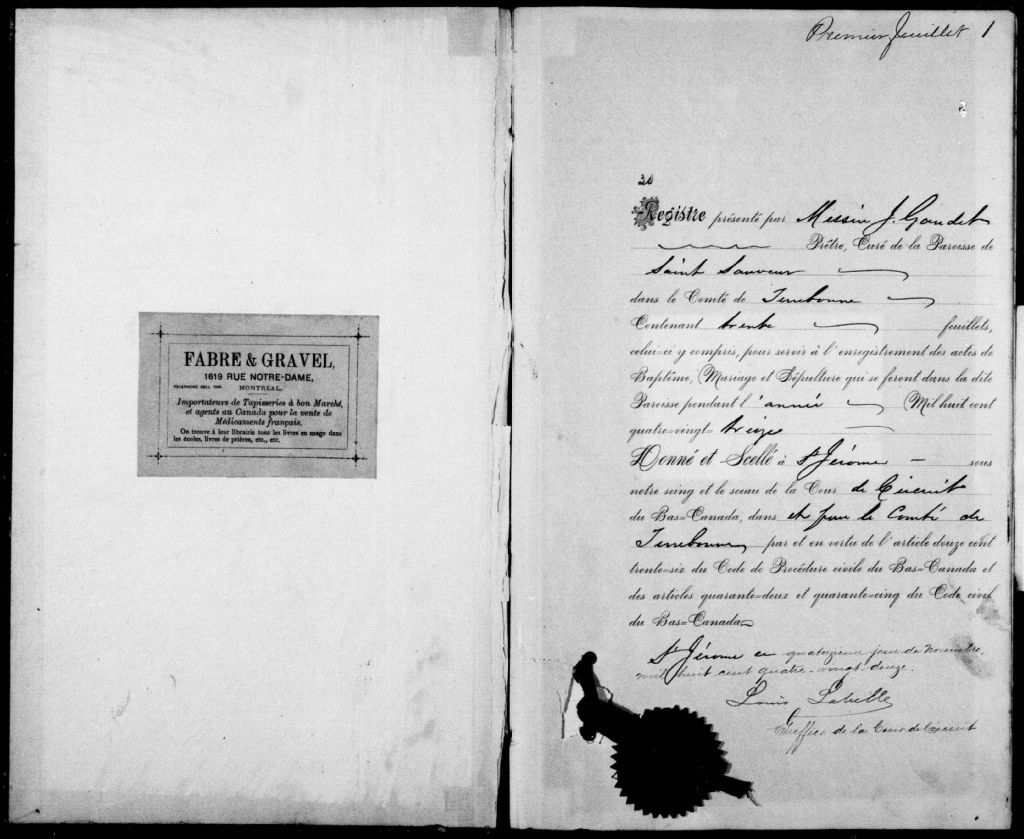 FABRE & GRAVEL,
1619 RUE NOTRE-DAME,
MONTREAL.
Importateurs de Tapisseries à bon Marché,
et agents au Canada pour la vente de
Médicaments français,
On trouve à leur librairie tous les livres en usage dans
les écoles, livres de prières, etc., etc.
Premier feuillet 1
Registre présenté par Messire J. Gaudet
Prêtre, Curé de la Paroisse de
Saint Sauveur
dans le Comté de Terrebonne
Contenant trente feuillets,
celui=ci y compris, pour servir à l'enregistrement des actes de
Baptême, Mariage et Sépulture qui se feront dans la dite
Paroisse pendant l'année Mil huit cent
quatre=vingt= treize
Donné et Scellé à St Jérome sous
notre seing et le sceau de la Cour de Circuit
du Bas=Canada, dans et pour le Comté de
Terrebonne, par et en vertu de l'article douze cent
trente=six du Code de Procédure civile du Bas=Canada et
des articles quarante=deux et quarante=cinq du Code civil
du Bas=Canada
St Jérome ce quatorzieme jour de novembre,
mil huit cent quatre-vingt douze.
Louis Labelle
Greffier de la Cour de Circuit